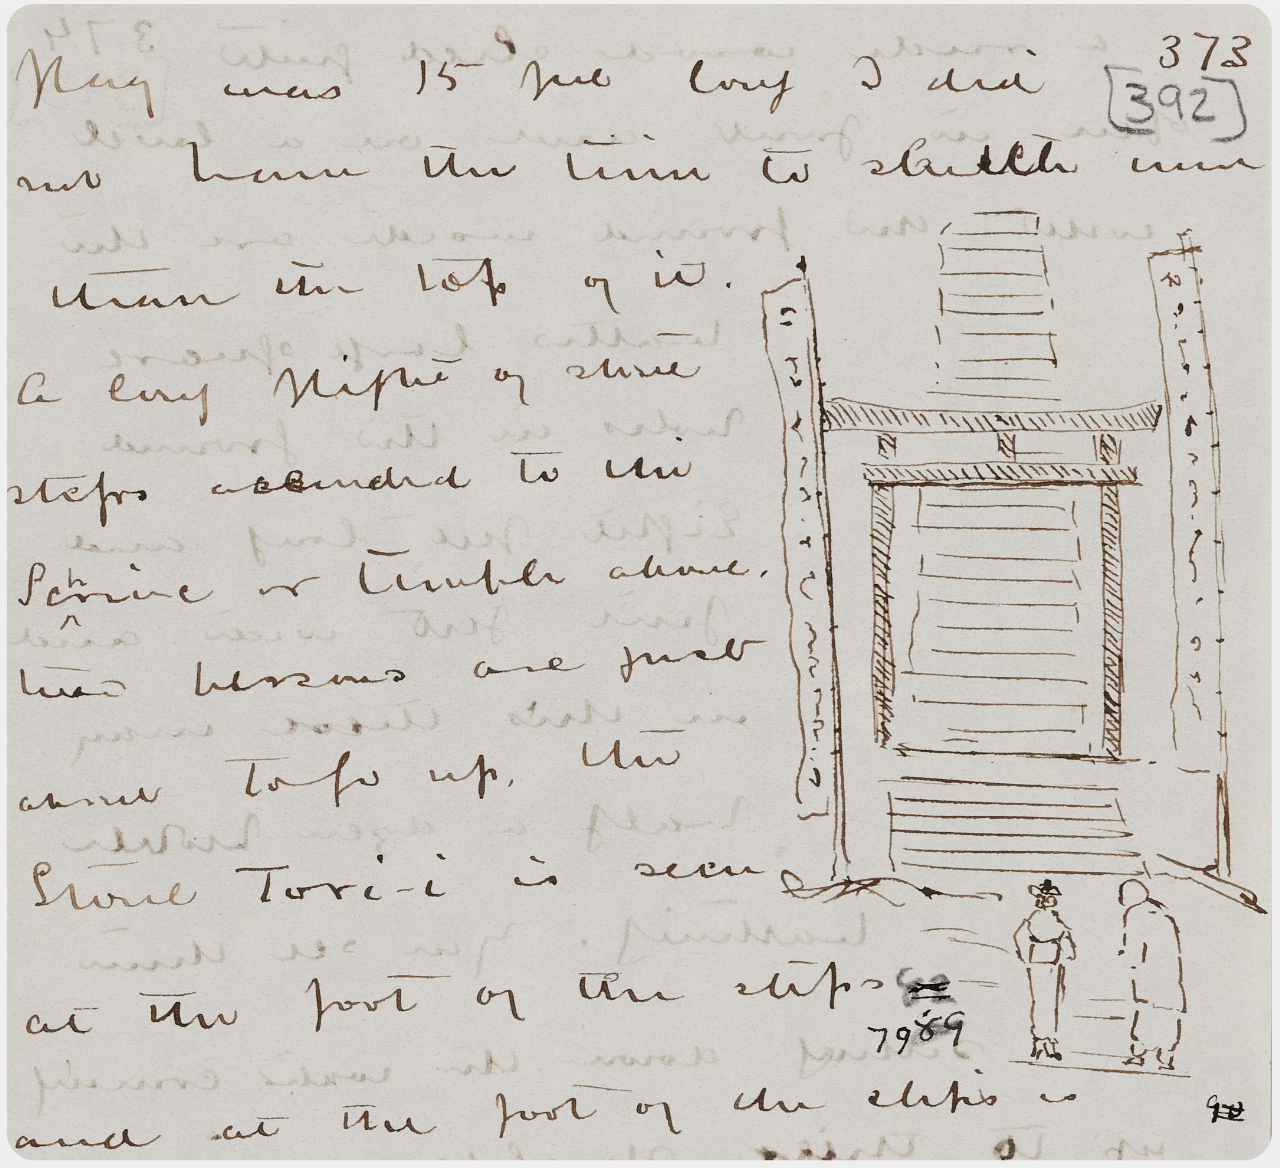 373
[392]
Flag was 15 feet long I did
not have the time to sketch more
than the top of it.
A long flight of stone
steps ascended to the
Schrine or temple above.
two persons are just
about to go up. the
Stone Tori-i is seen
at the foot of the steps
7989
and at the foot of the steps is